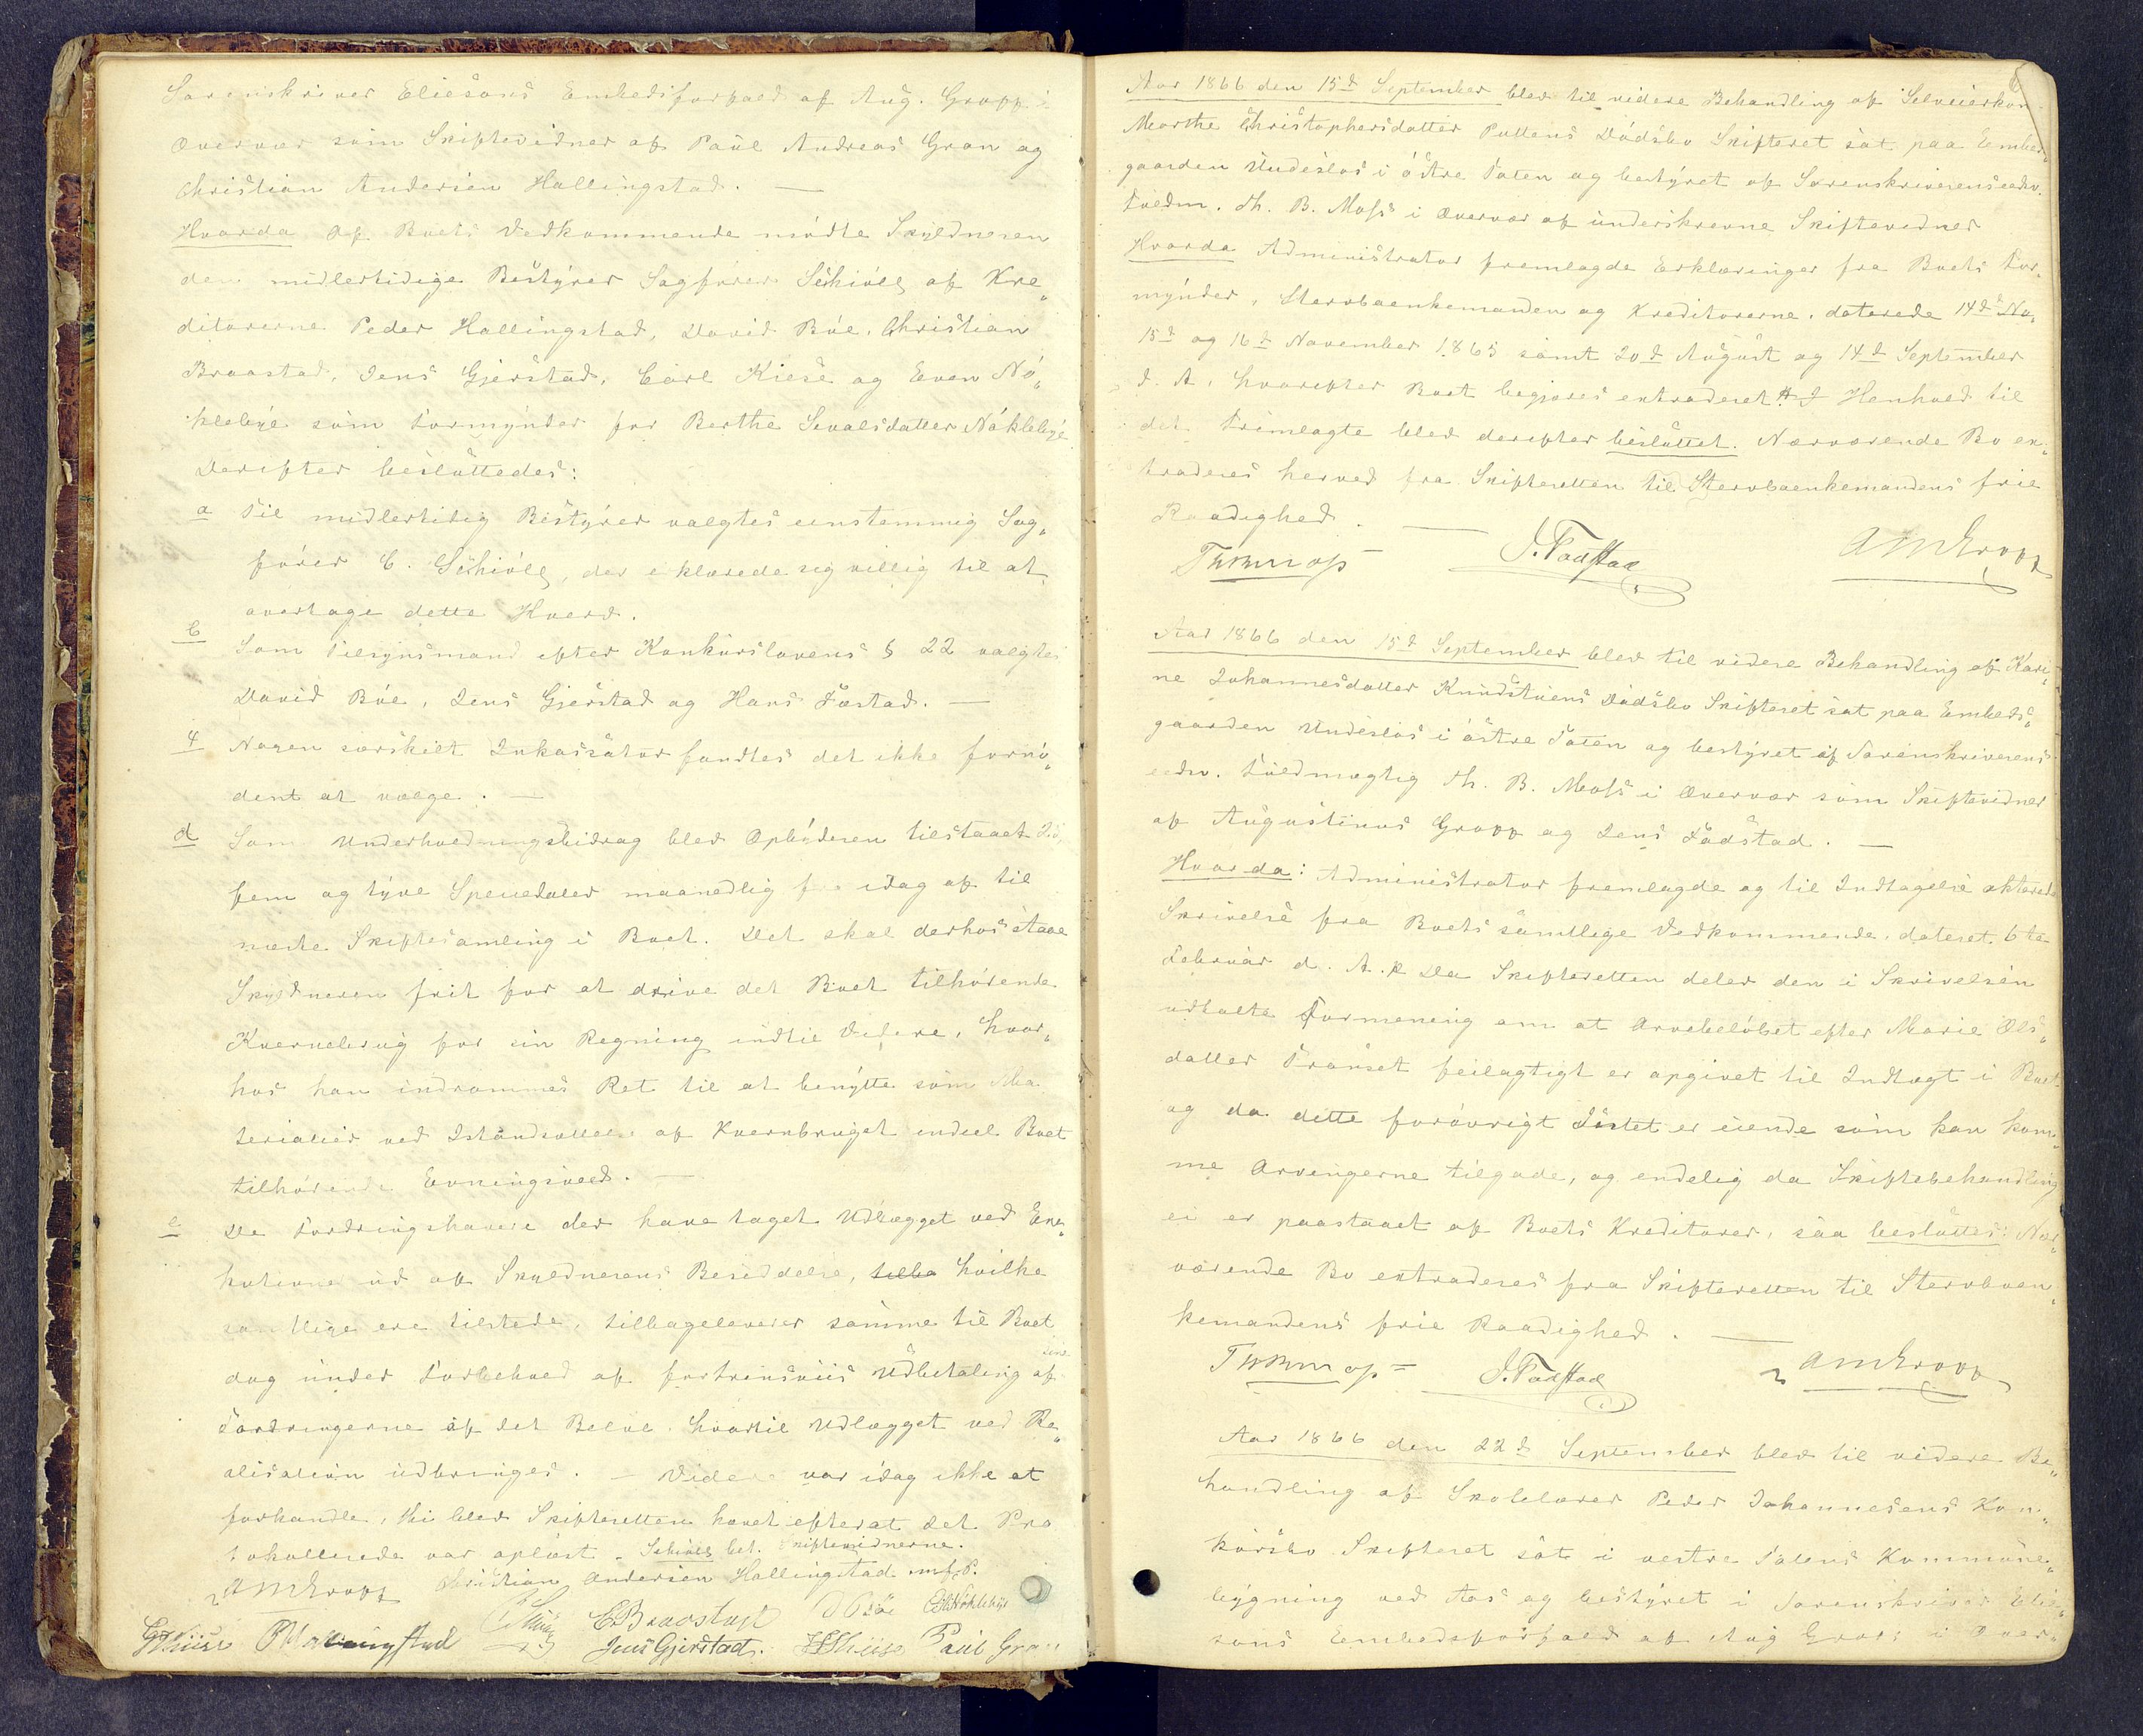 Sorenskriver Eliesons Embedsforfald af Aug. Gropp i
Overvær som Skiftevidner af Paul Andreas Gran og
Christian Andersen Hallingstad. —
Hvorda af Boets Vedkommende mødte Skyldneren
den midlertidige Bestyrer Sagfører Schiøll af Kre„
ditorerne Peder Hallingstad, David Bøe, Christian
Braastad, Jens Gjerstad, Carl Kiese og Even Nø„
klebye som Formynder for Berthe Sivalsdatter Nøklebye
Derefter besluttedes:
a Til midlertidig Bestyrer valgtes eenstemmig Sag„
fører C. Schiøll, der erklærede sig villig til at
overtage dette Hverv.
b
Som Tilsynsmænd efter Konkurslovens § 22 valgtes
David Bøe, Jens Gjerstad og Hans Fostad. —
c Nogen særskilt Inkassator fandtes det ikke fornø„
dent at vælge. —
d Som Underholdningsbidrag blev Opbyderen tilstaaet 25,
fem og tyve Speciedaler maanedlig fra idag af til
næste Skiftesamling i Boet. Det skal derhos staae
Skyldneren frit for at drive det Boet tilhørende
Kvernebrug for sin Regning indtil Videre, hvor„
hos han indrømmes Ret til at benytte som Ma
terialier ved Istandsættelse af Kvernbruget endeel Boet
tilhørende Bygningsved. —
e De Fordringshavere der have taget Udlægget ved Exe„
kutionen ud af Skyldnerens Besiddelse, hvilke
samtlige ere tilstede, tilbageleverer samme til Boet
dog under Forbehold af fortrinsviis Udbetaling af sine
Fordringerne af det Beløb hvortil Udlægget ved Re„
alisation udbringes. — Videre var idag ikke at
forhandle, thi blev Skifteretten hævet efterat det Pro
tokollerede var oplæst. Schiøll bet. Skiftevidnerne.
AMGropp Christian Andersen Hallingstad m.f.P.
CSchiøll CBraastad DBøe ENøklebye
CKiese PHallingstad Jens Gjerstad. Paul Gran
Aar 1866 den 15de September blev til videre Behandling af Selveierkon
Marthe Christophersdatter Pullens Dødsbo Skifteret sat paa Embeds„
gaarden Undeslos i østre Toten og bestyret af Sorenskriverens edsv.
Fuldm. Th. B. Moss i Overvær af underskrevne Skiftevidner
Hvorda Administrator fremlagde Erklæringer fra Boets For„
mynder, Stervboenkemanden og Kreditorerne, daterede 14de No.
15de og 16de November 1865 samt 20de August og 14de September
d. A. hvorefter Boet begjæres extraderet. I Henhold til
det Fremlagte blev derefter besluttet. Nærværende Bo ex„
traderes herved fra Skifteretten til Stervboenkemandens frie
Raadighed. —
ThBMoss — J. Fadstad AMGropp
Aar 1866 den 15de September blev til videre Behandling af Kari„
ne Johannesdatter Knudstuens Dødsbo Skifteret sat paa Embeds„
gaarden Undeslos i østre Toten og bestyret af Sorenskriverens
edsv. Fuldmægtig Th. B. Moss i Overvær som Skiftevidner
af Augustinus Gropp og Jens Fadstad. —
Hvorda: Administrator fremlagde og til Indtagelse akterede
Skrivelse fra Boets samtlige Vedkommende, dateret 6te
Februar d. A. Da Skifteretten deler den i Skrivelsen
udtalte Formening om at Arvebeløbet efter Marie Ols„
datter Framset feilagtigt er opgivet til Indtægt i Boet
og da dette forøvrigt Intet er eiende som kan kom„
me Arvingerne tilgode, og endelig da Skiftebehandling
ei er paastaaet af Boets Kreditorer, saa besluttes: Nær„
værende Bo extraderes fra Skifteretten til Stervboen„
kemandens frie Raadighed. —
ThBMoss — J. Fadstad AMGropp
Aar 1866 den 22de September blev til videre Be„
handling af Skolelærer Peder Johannesens Kon„
kursbo Skifteret sat i vestre Totens Kommune„
bygning ved Aas og bestyret i Sorenskriver Elie„
sons Embedsforfald af Aug Gropp i Over„